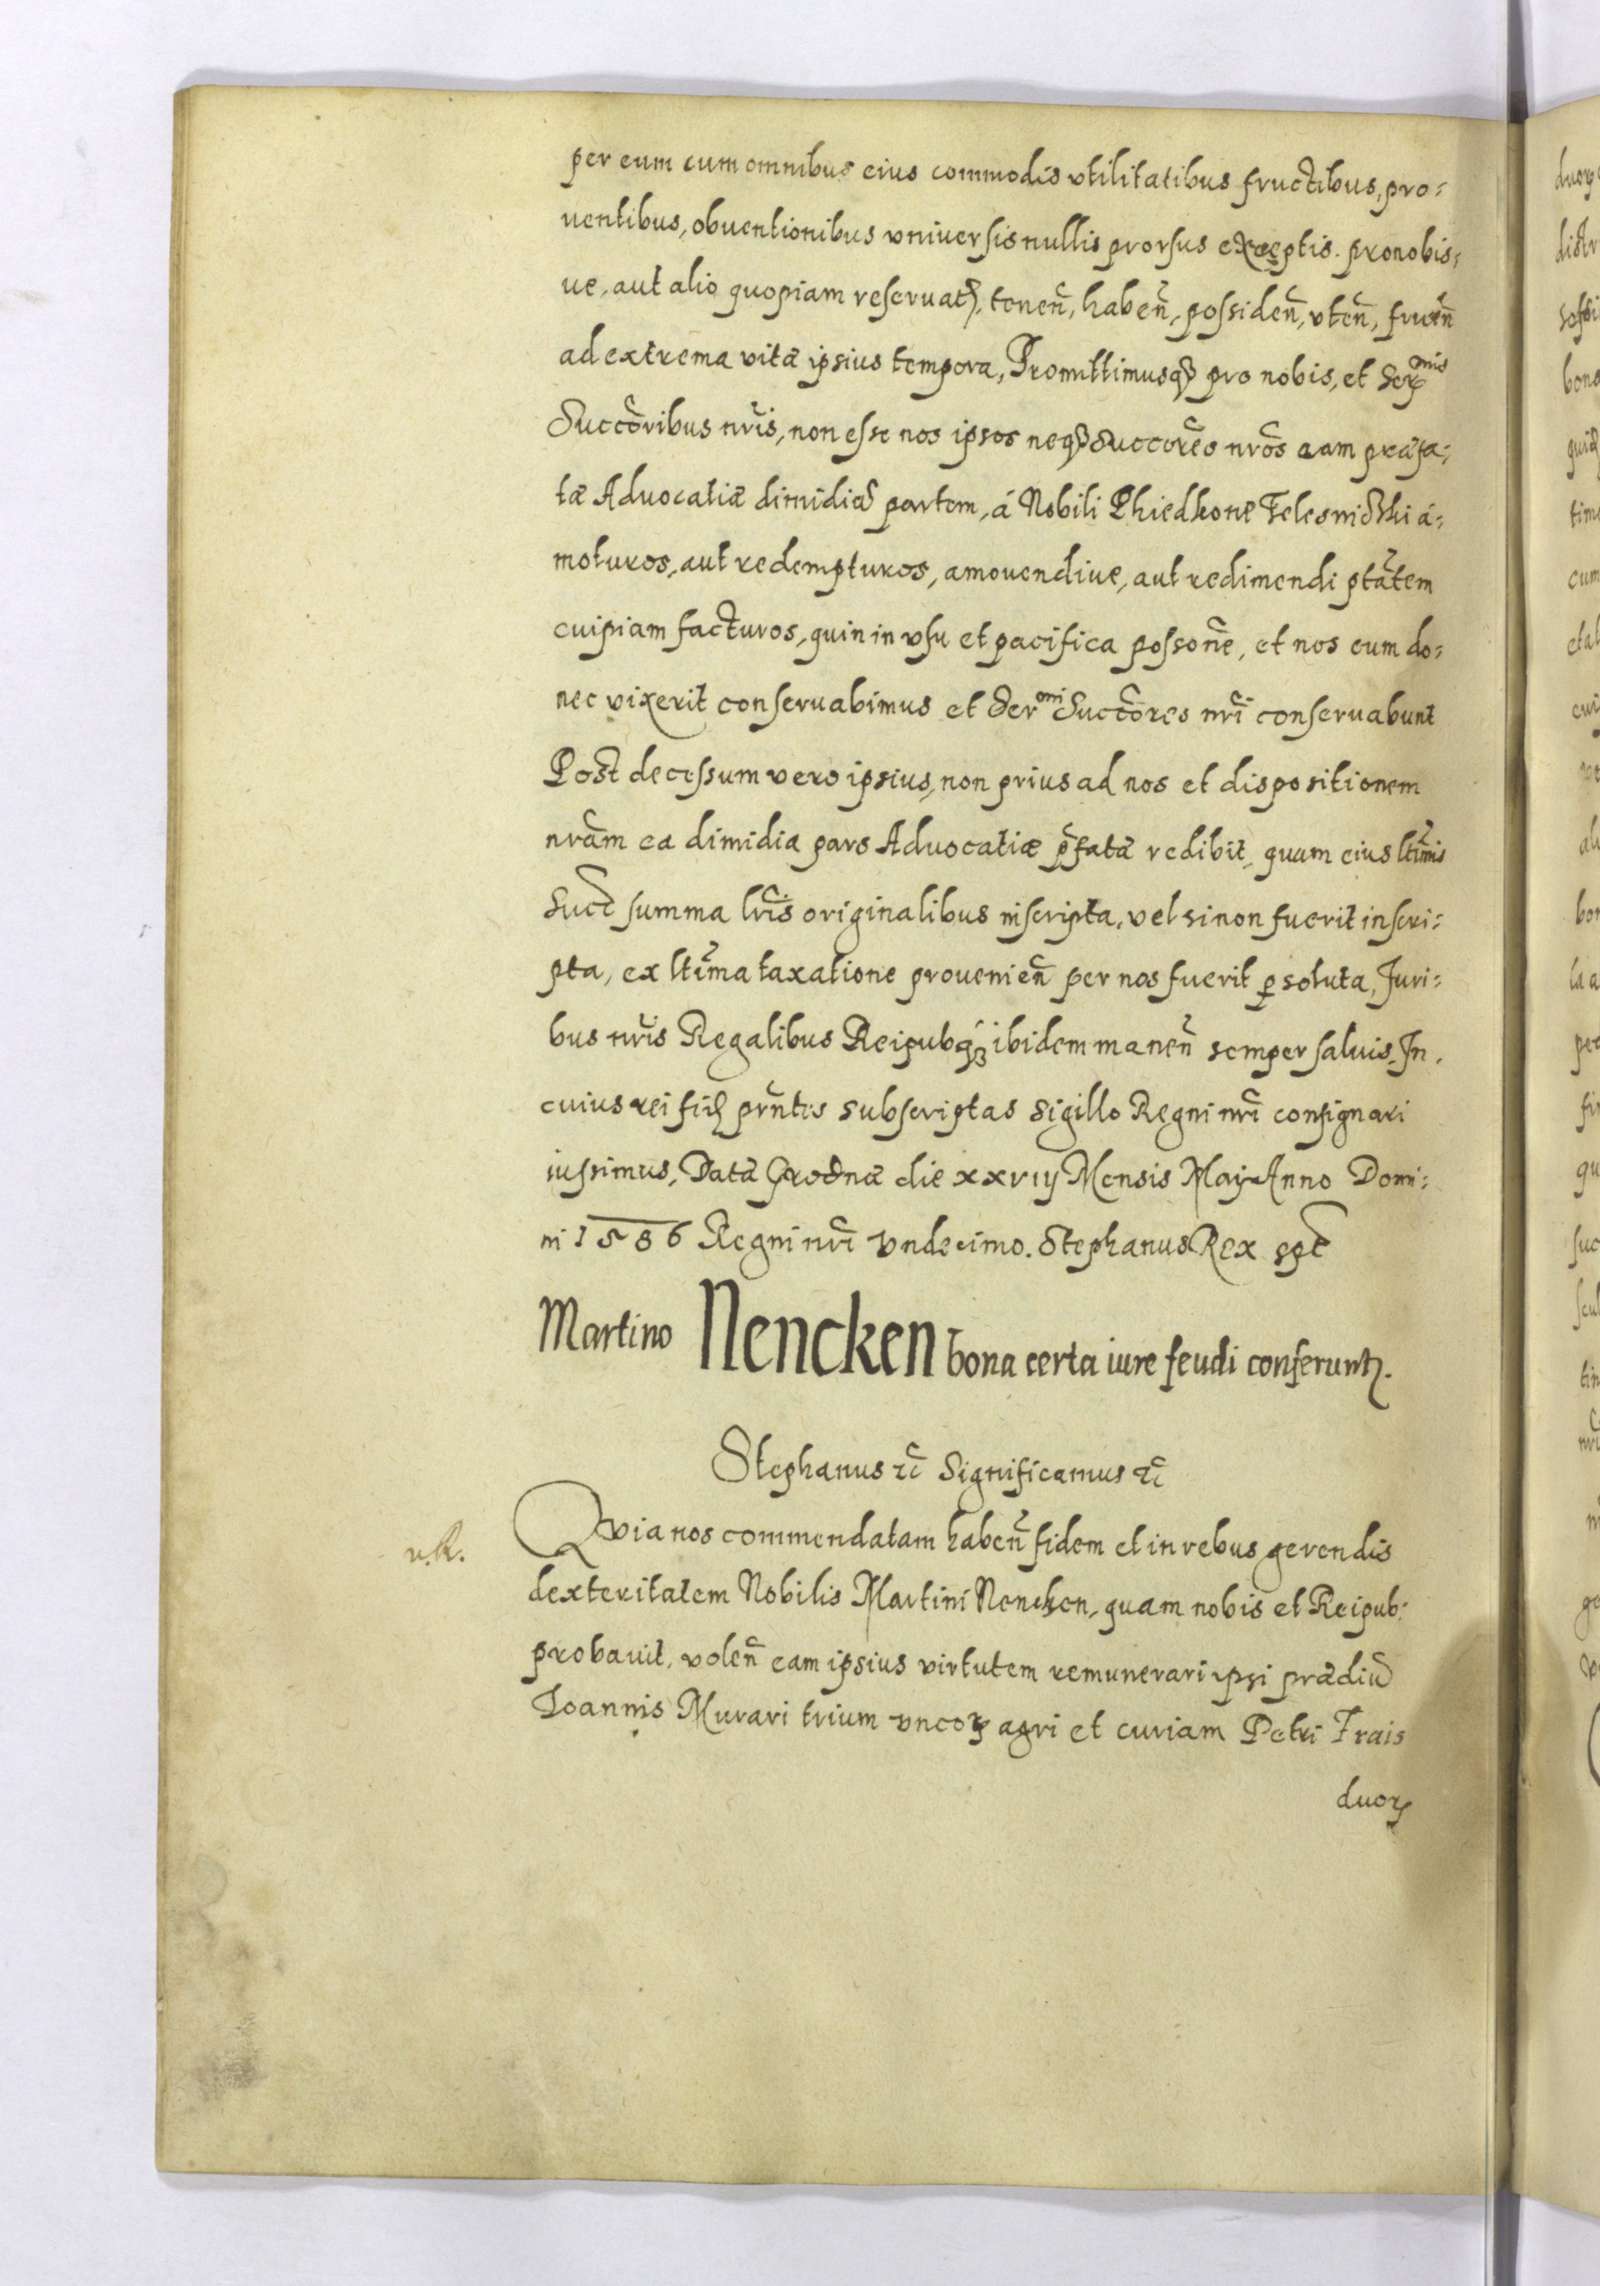 per eum cum omnibus eius commodis vtilitatibus fructibus, pro=
uentibus, obuentionibus vniuersis nullis prorsus exceptis. pro nobis=
ue, aut alio quopiam reseruatꝭ, tenen̄, haben̄, possiden̄, vten̄, fruen̄
ad extrema vitæ ipsius tempora, Promittimusqꝫ pro nobis, et Serᵐⁱˢ
Succōribus nr̄is, non esse nos ipsos neqꝫ Succores nr̄os eam præfa=
tæ Aduocatiæ dimidiā partem, á Nobili Phiedkone Telesnidzki á=
moturos, aut redempturos, amouendiue, aut redimendi ptātem
cuipiam facturos, quin in vsu et pacifica possōne, et nos eum do=
nec vixerit conseruabimus et Serᵐⁱ Succōres nr̄i conseruabunt
Post decessum vero ipsius, non prius ad nos et dispositionem
nrām ea dimidia pars Aduocatiæ p̄fatæ redibit, quam eius ltīmis
Succ̄ summa lr̄is originalibus inscripta, vel si non fuerit inscri=
pta, ex ltīma taxatione prouenien̄ per nos fuerit ꝑsoluta, Juri=
bus nr̄is Regalibus Reipubqꝫ ibidem manen̄ semper saluis, In
cuius rei fid̄ prn̄tes subscriptas sigillo Regni nr̄i consignari
iussimus, Datæ Grodnæ die xxviij Mensis Maij Anno Domi=
ni 1586 Regni nr̄i Vndecimo. Stephanus Rex spt̄
Martino Nencken bona certa iure feudi conferuntꝛ.
Stephanus ꝛc̄ Significamus ꝛc̄
v.k.
Quia nos commendatam haben̄ fidem et in rebus gerendis
dexteritatem Nobilis Martini Nencken, quam nobis et Reipub:
probauit, volen̄ eam ipsius virtutem remunerari ipsi prædiū
Joannis Murari trium vncoꝝ agri et curiam Petri Trais
duoꝝ